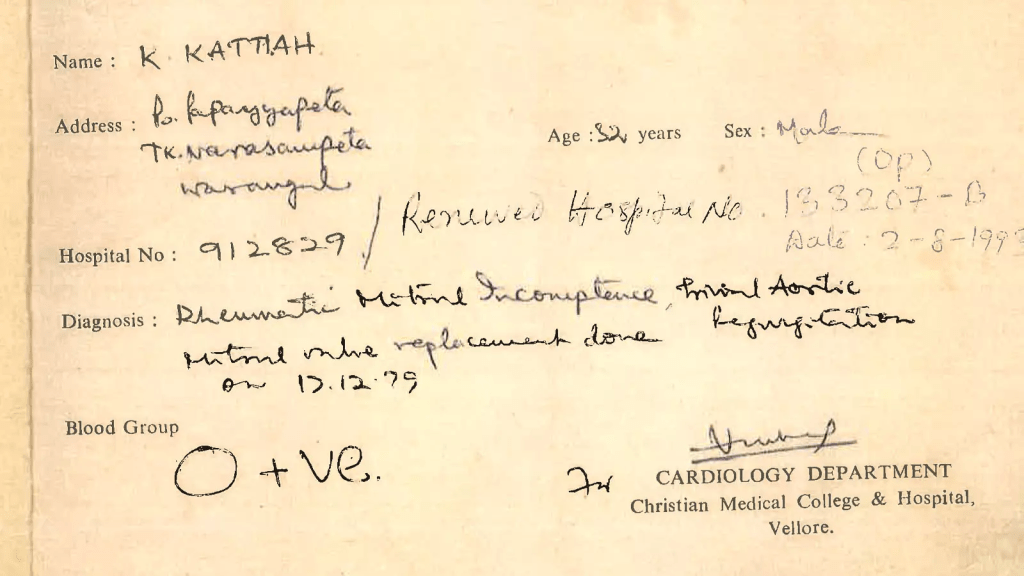 Name : K. KATTIAH
Address : Po. Papayyapeta
TK. Narasampeta
Warangal
Age : 32 years Sex : Male
(OP)
Hospital No : 912829 / Renewed Hospital No. 133207-B
Date : 2-8-1993
Diagnosis : Rheumatic Mitral Incomptence, trivial Aortic
Regurgitation
Mitral valve replacement done
on 17.12.79
Blood Group
O + VE.
For
CARDIOLOGY DEPARTMENT
Christian Medical College & Hospital,
Vellore.